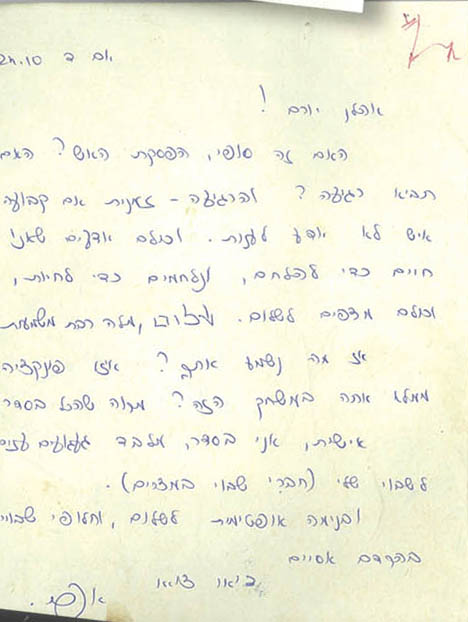 יום ד 24.10
אהלן יורם!
האם זה סופי, הפסקת האש? האם
תביא רגיעה? והרגיעה - זמנית אם קבועה
איש לא יודע לענות. וכולם יודעים שאנו
חיים כדי להלחם, ונלחמים כדי לחיות,
וכולם מצפים לשלום. שלום, מלה רבת משמעות
אז מה נשמע אתך? איזו פונקציה
ממלא אתה במשחק הזה? מקוה שהכל בסדר
אישית, אני בסדר, מלבד געגועים עזים
לשבוי שלי (חברי שבוי במצרים).
ובנימה אופטימית לשלום, וחלופי שבויי
בהקדם אסיים
ביאו צ'או